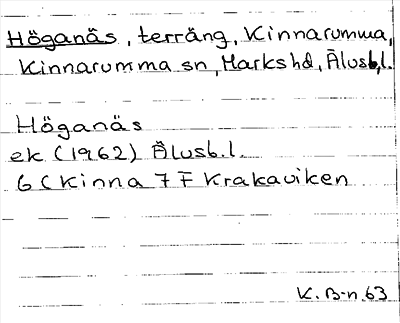 Höganäs, terräng, Kinnarumma,
Kinnarumma sn, Marks hd, Älvsb.l.
Höganäs
ek (1962) Älvsb.l.
6 C Kinna 7 F Krakaviken
K. B-n. 63